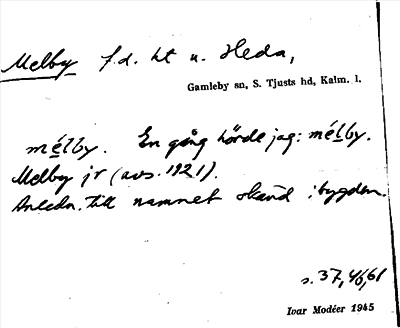 Melby f.d. ht u. Heda,
Gamleby sn, S. Tjusts hd, Kalm. l.
mélby. En gång hörde jag: mélby.
Melby jr (avs. 1921).
Anledn. till namnet okänd i bygden.
s. 37, 46, 61
Ivar Modéer 1945